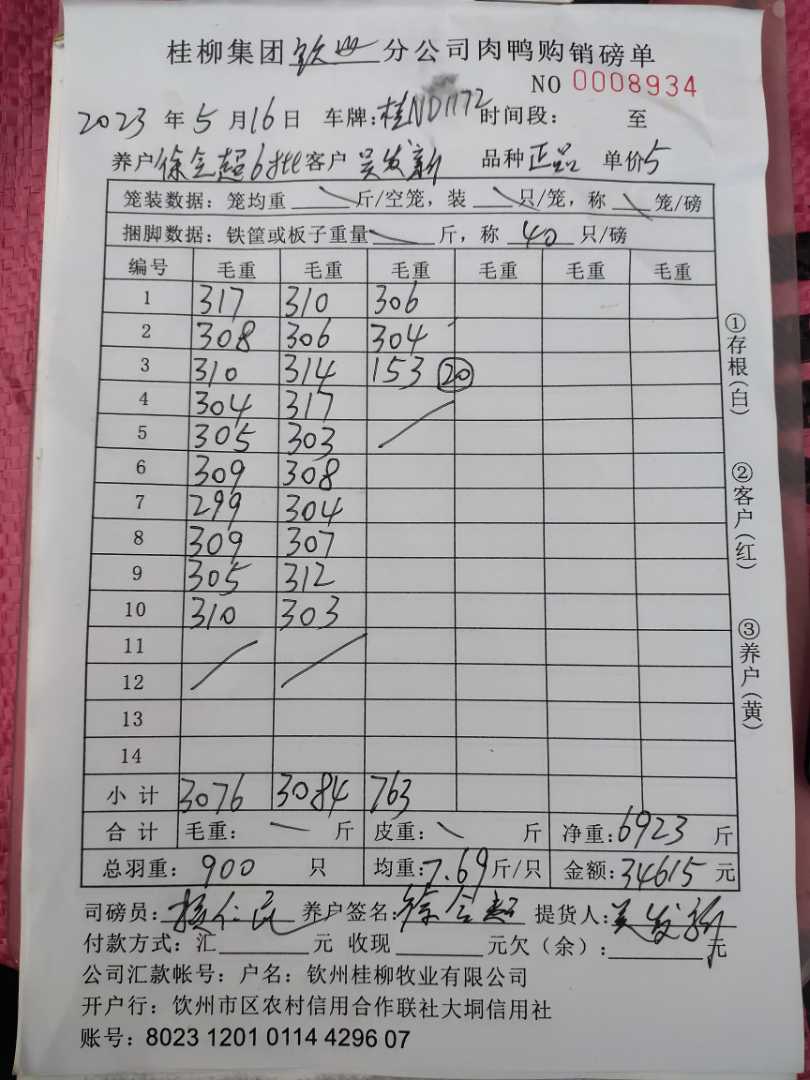 桂柳集团钦州分公司肉鸭购销磅单
NO 0008934
2023年5月16日 车牌:桂ND1172 时间段: 至
养户徐会超6批客户吴发新 品种正品 单价5
笼装数据:笼均重 斤/空笼,装 只/笼,称 笼/磅
捆脚数据:铁筐或板子重量 斤,称 40 只/磅
编号 毛重 毛重 毛重 毛重 毛重 毛重
1 317 310 306
2 308 306 304
3 310 314 153 20
4 304 317
5 305 303
6 309 308
7 299 304
8 309 307
9 305 312
10 310 303
11
12
13
14
小计 3076 3084 763
合计 毛重: 斤 皮重: 斤 净重:6923 斤
总羽重:900 只 均重:7.69斤/只 金额:34615元
司磅员: 养户签名:徐会超 提货人:吴发新
付款方式:汇 元 收现 元欠(余): 元
公司汇款帐号:户名:钦州桂柳牧业有限公司
开户行:饮州市区农村信用合作联社大垌信用社
账号:8023 1201 0114 4296 07
①存根(白)
②客户(红)
③养户(黄)